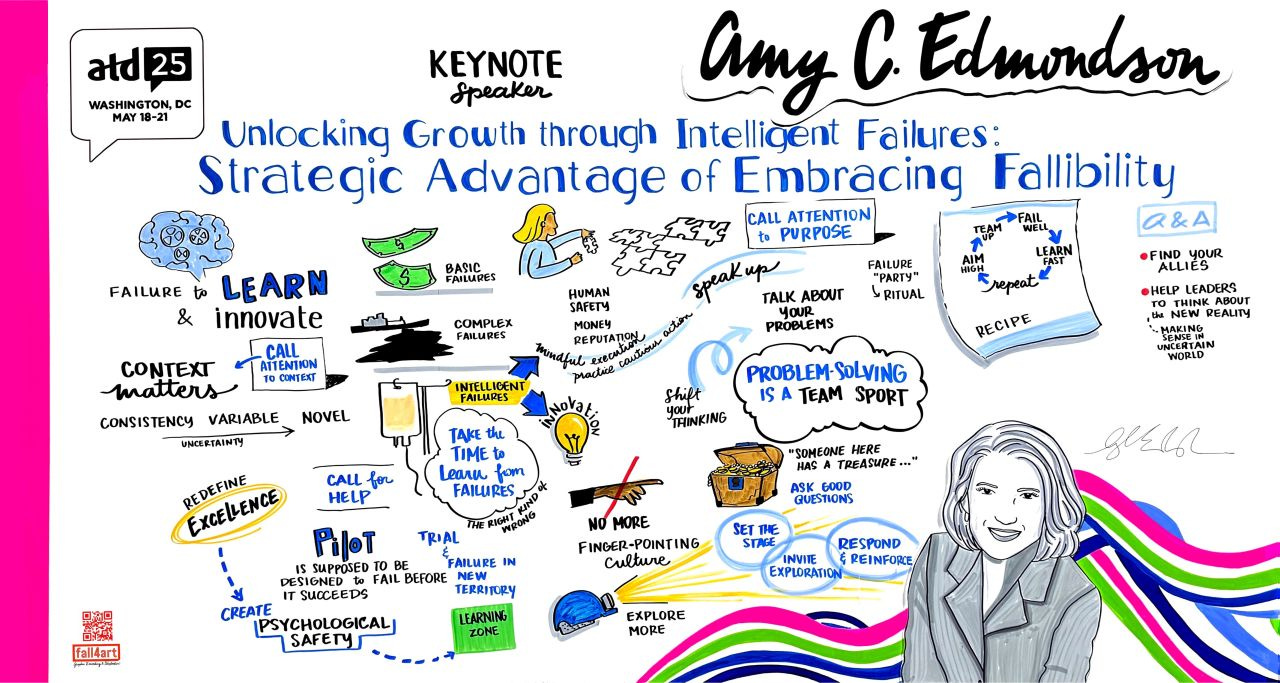 atd 25
WASHINGTON, DC
MAY 18-21
KEYNOTE
Speaker
Amy C. Edmondson
Unlocking Growth through Intelligent Failures:
Strategic Advantage of Embracing Fallibility
FAILURE to LEARN
& innovate
CONTEXT
matters
CALL
ATTENTION
TO CONTEXT
CONSISTENCY VARIABLE NOVEL
UNCERTAINTY
REDEFINE
EXCELLENCE
CREATE
PSYCHOLOGICAL
SAFETY
LEARNING
ZONE
CALL for
HELP
PILOT
IS SUPPOSED TO BE
DESIGNED to FAIL BEFORE
IT SUCCEEDS
TRIAL
&
FAILURE IN
NEW
TERRITORY
$
$
BASIC
FAILURES
COMPLEX
FAILURES
INTELLIGENT
FAILURES
TAKE the
TIME to
Learn from
FAILURES
THE RIGHT KIND of
WRONG
INNOVATION
HUMAN
SAFETY
MONEY
REPUTATION
mindful execution
practice cautious action
speak up
CALL ATTENTION
to PURPOSE
TALK ABOUT
YOUR
PROBLEMS
FAILURE
"PARTY"
RITUAL
shift
YOUR
THINKING
PROBLEM-SOLVING
IS A TEAM SPORT
NO MORE
FINGER-POINTING
Culture
"SOMEONE HERE
HAS A TREASURE..."
ASK GOOD
QUESTIONS
SET THE
STAGE
INVITE
EXPLORATION
RESPOND
& REINFORCE
EXPLORE
MORE
TEAM
UP
FAIL
WELL
LEARN
FAST
repeat
AIM
HIGH
RECIPE
Q&A
FIND YOUR
ALLIES
HELP LEADERS
TO THINK ABOUT
the NEW REALITY
MAKING
SENSE IN
UNCERTAIN
WORLD
fall4art